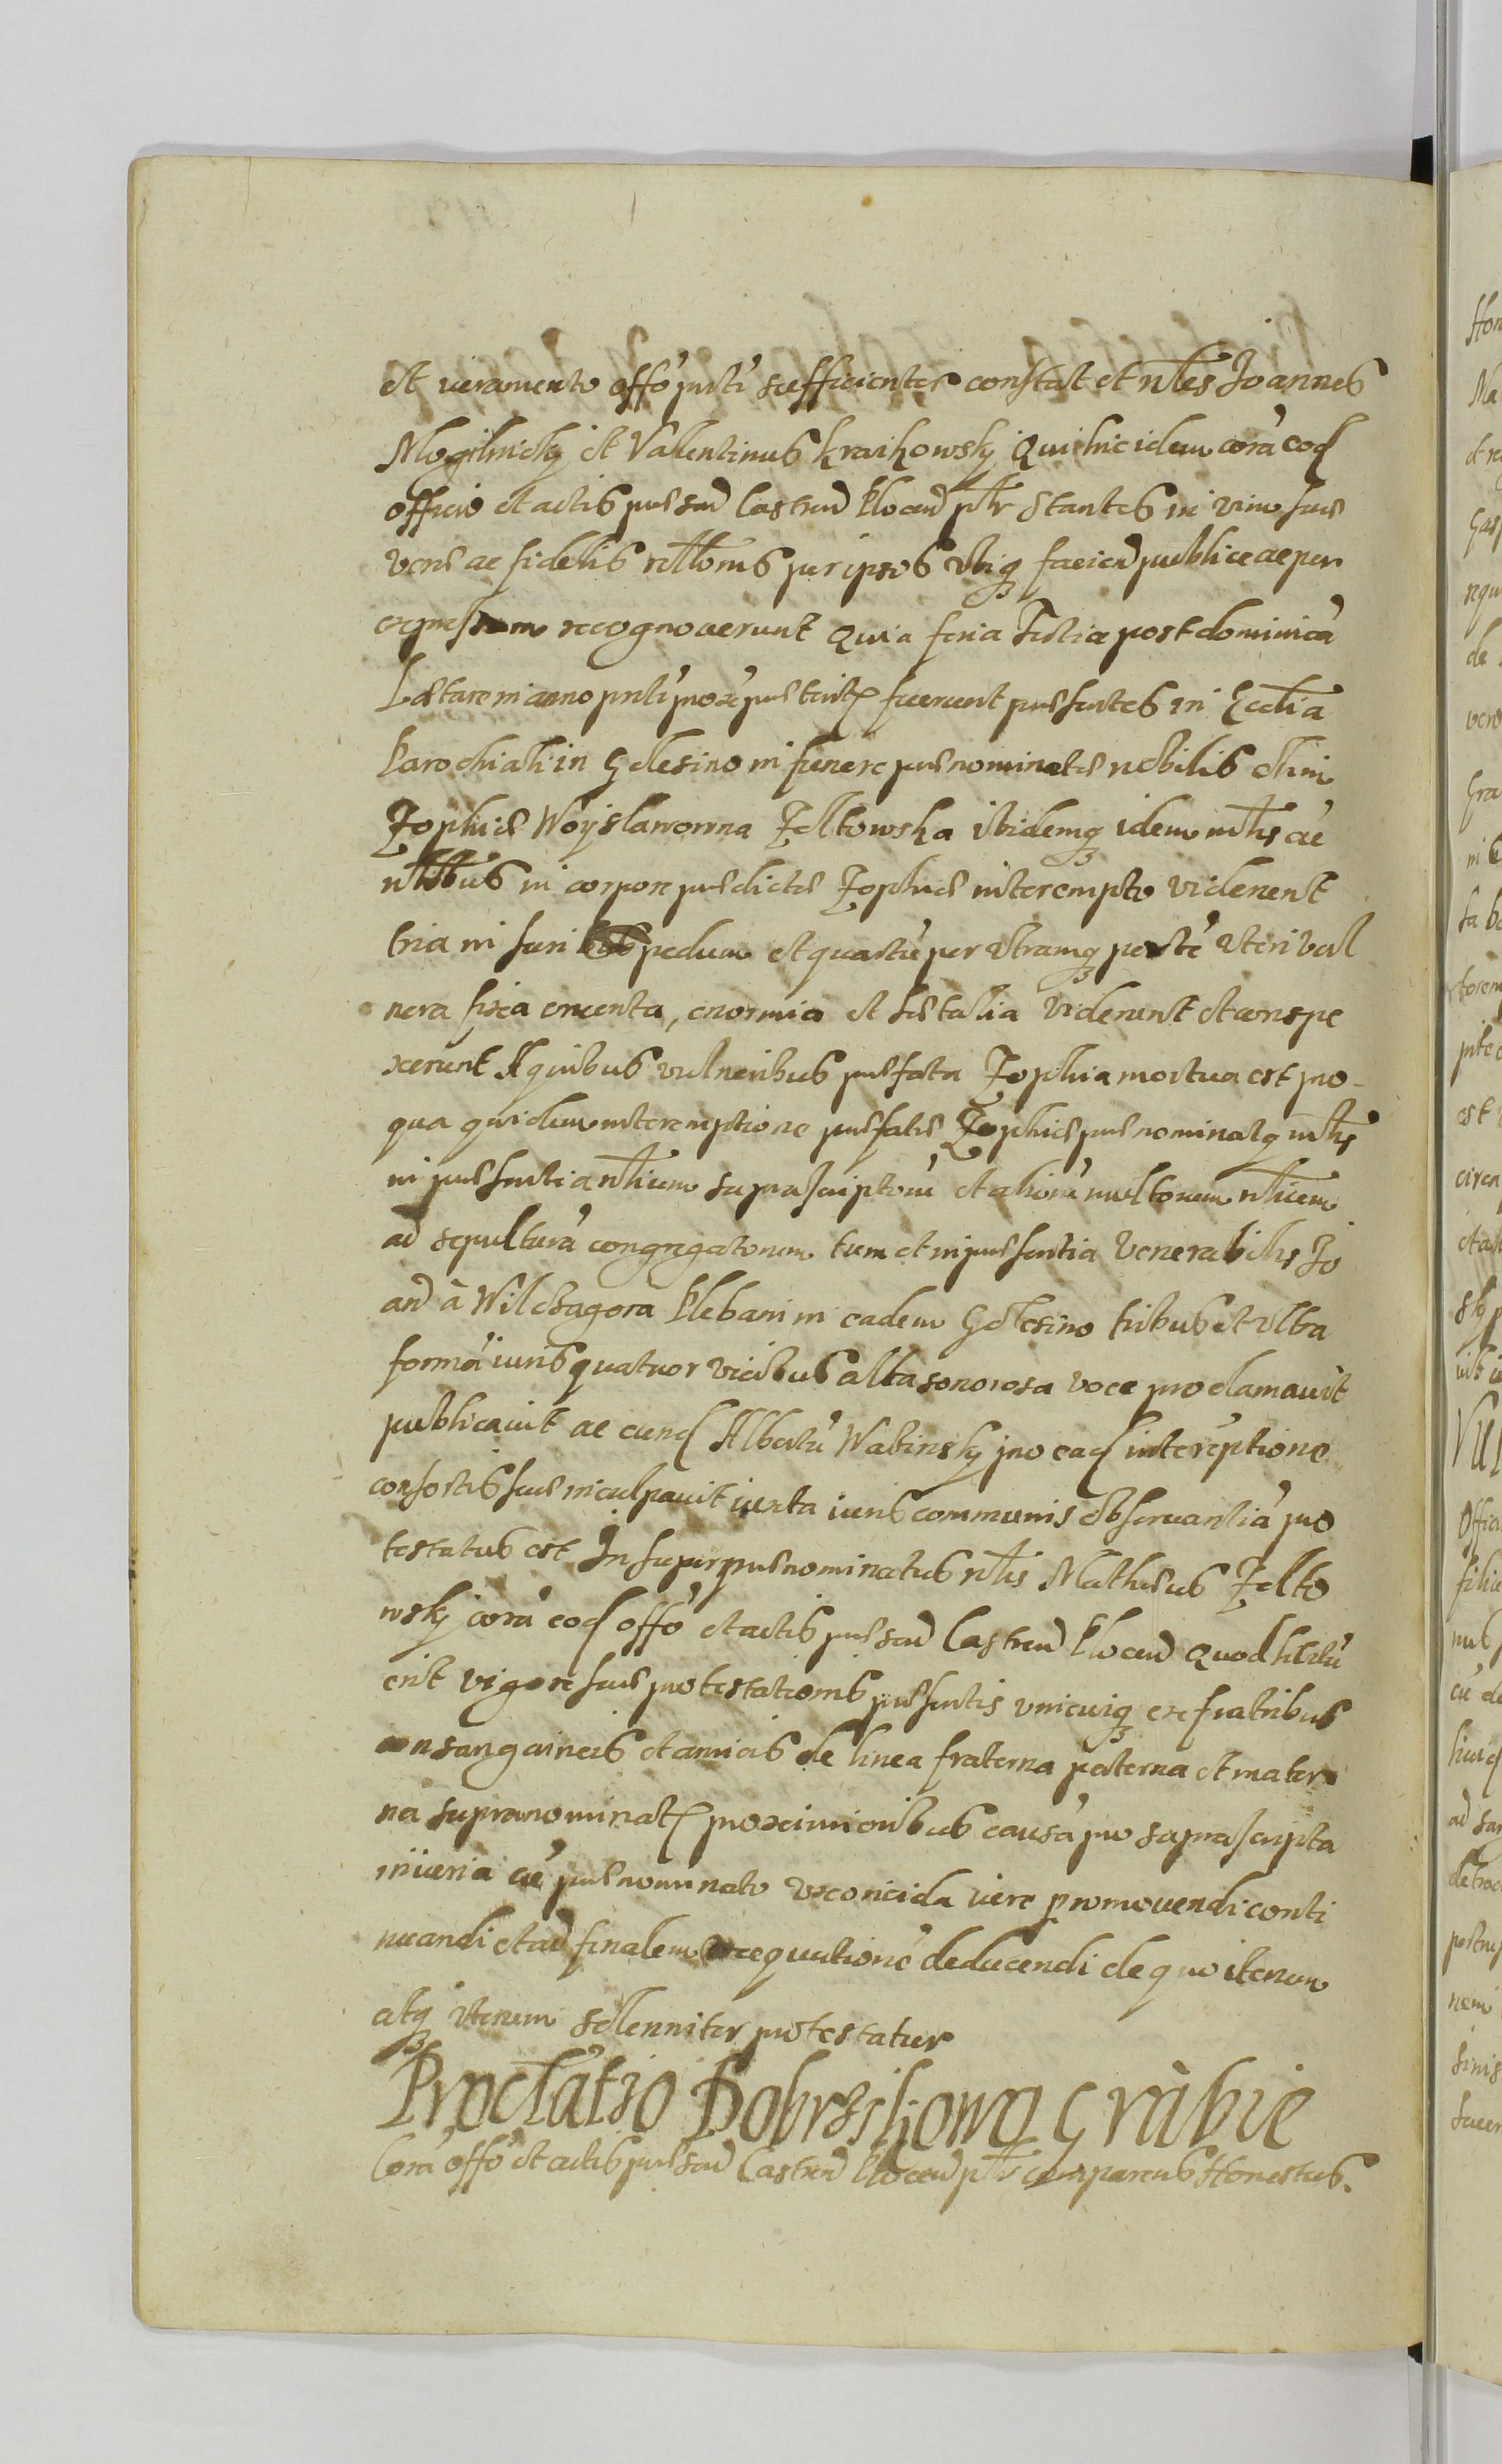 et iuramento offo jnrti sufficienter constat et nbles Joannes
Mogilnicky et Valentinus Kraikowsky Qui hic idem corã eod
officio et actis præsen Castren Plocen pltr stantes in vim suæ
veræ ac fidelis rellonis per ipsos vbiq facien publice ac per
expressum recognouerunt Quia feria Tertia post dominicã
Lætare in anno pnti prox præterit fuerunt præsentes in Ecclia
Parochiali in Golesino in funere prænominatæ nobilis olim
Zophiæ Woyslawowna Zoltowska ibidemq idem mtlis ac
nbilibus in corpore prædictæ Zophiæ interemptæ viderunt
tria in suri pedum et quartũ per vtramq partẽ vteri vul
nera fixa cruenta, enormia et lætalia viderunt et conspe
xerunt A quibus vulneribus præfata Zophia mortua est pro
qua quidem interemptione præfatæ Zophiæ prænominatq mtlis
in præsentia nblium suprascriptorũ et aliorũ multorum nblium
ad sepulturã congregatorum tum et in præsentia Venerabilis Jo
an à Wilczagora Plebani in eadem Golesino tribus et vltra
formã iuris quatuor vicibus alta sonorosa voce proclamauit
publicauit ac eund Albertũ Wabinsky pro ead interẽptione
consortis suæ inculpauit iuxta iuris communis obseruantiã pro
testatus est Insuper prænominatus nblis Mathæus Zolto
wsky corã eod offo et actis præsen Castren Plocen Quod licitũ
erit vigore suæ protestationis præsentis vnicuiq ex fratribus
consanguineis et amicis de linea fraterna paterna et mater
na supranominat proximioribus causã pro suprascripta
iniuria cũ prænominato vxoricida iure promouendi conti
nuandi et ad finalem exequutionẽ deducendi de quo iterum
atq iterum solenniter protestatur
Proctatio Dobrzikowa Gràbie
Corã offo et actis præsen Castren Plocen pltr comparens Honestus.